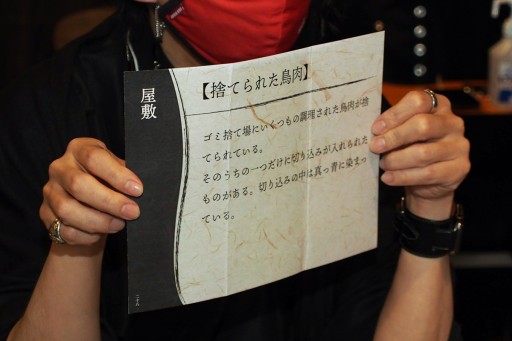 屋敷
【捨てられた鳥肉】
ゴミ捨て場にいくつもの調理された鳥肉が捨
てられている。
そのうちの一つだけに切り込みが入れられた
ものがある。切り込みの中は真っ青に染まっ
ている。